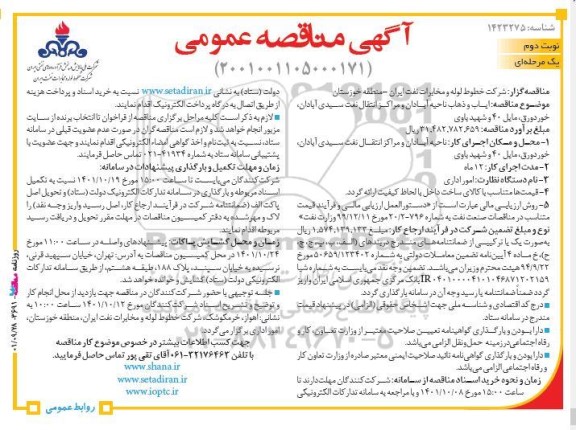 شناسه: ۱۴۲۳۲۷۵
نوبت دوم
یک مرحله‌ای
آگهی مناقصه عمومی
(۲۰۰۱۰۰۱۱۰۵۰۰۰۱۷۱)
مناقصه‌گزار: شرکت خطوط لوله و مخابرات نفت ایران -منطقه خوزستان
موضوع مناقصه: ایاب و ذهاب ناحیه آبادان و مراکز انتقال نفت سبدی آبادان،
خوردورق، مایل ۴۰ و شهید یاوی
مبلغ برآورد مناقصه: ۳۱,۴۸۲,۷۸۲,۶۵۹ ریال
۱- محل و مکان اجرای کار: ناحیه آبادان و مراکز انتقال نفت سبدی آبادان،
خوردورق، مایل ۴۰ و شهید یاوی
۲- مدت اجرای کار: ۱۲ ماه
۳- نام دستگاه نظارت: امور اداری
۴- قیمت‌ها متناسب با کالای ساخت داخل با لحاظ کیفیت ارائه گردد.
۵- روش ارزیابی مالی عبارت است از «دستورالعمل ارزیابی مالی و فرآیند قیمت
متناسب در مناقصات صنعت نفت به شماره ۷۹۶-۲۰/۲ مورخ ۹۹/۱۲/۱۱ وزارت نفت»
نوع و مبلغ تضمین شرکت در فرآیند ارجاع کار: مبلغ ۱,۵۷۴,۱۳۹,۱۳۳ ریال
به صورت یک یا ترکیبی از ضمانتنامه‌های مندرج در بندهای (الف، ب، پ، ج، چ،
ح)، ماده ۴ آیین‌نامه تضمین معاملات دولتی به شماره ۱۲۳۴۰۲/ت۵۰۶۵۹ مورخ
۹۴/۹/۲۲ هیئت محترم وزیران می‌باشد. تضمین وجه نقد می‌بایست به شماره شبا
بانک مرکزی جمهوری اسلامی ایران واریز
گردد ضمنا ضمانتنامه یا رسید وجه آن در سامانه بارگذاری گردد.
• درج کد اقتصادی و شناسه ملی جهت اشخاص حقوقی (الزامی) در پیشنهاد قیمت
مندرج در سامانه ستاد.
• دارا بودن و بارگذاری گواهینامه تعیین صلاحیت معتبر از وزارت تعاون، کار و
رفاه اجتماعی در زمینه حمل و نقل الزامی می‌باشد.
• دارا بودن و بارگذاری گواهی‌نامه تائید صلاحیت ایمنی معتبر صادره از وزارت تعاون کار
و رفاه اجتماعی الزامی می‌باشد.
زمان و نحوه خرید اسناد مناقصه از سامانه: شرکت کنندگان مهلت دارند تا
ساعت ۱۵:۰۰ مورخ ۱۴۰۱/۱۰/۰۸ و با مراجعه به سامانه تدارکات الکترونیکی
دولت (ستاد) به نشانی www.setadiran.ir نسبت به خرید اسناد و پرداخت هزینه
از طریق اتصال به درگاه پرداخت الکترونیک اقدام نمایند.
• لازم به ذکر است کلیه مراحل برگزاری مناقصه از فراخوان تا انتخاب برنده از سایت
مزبور انجام خواهد شد و لازم است مناقصه گران در صورت عدم عضویت قبلی در سامانه
ستاد، نسبت به ثبت نام و اخذ گواهی امضاء الکترونیکی اقدام نمایند و جهت عضویت با
پشتیبانی سامانه ستاد به شماره ۴۱۹۳۴-۰۲۱ تماس حاصل فرمایند.
زمان و مهلت تکمیل و بارگذاری پیشنهادات در سامانه:
شرکت کنندگان می‌بایست تا ساعت ۱۵:۰۰ مورخ ۱۴۰۱/۱۰/۱۹ نسبت به تکمیل
اسناد مربوطه و بارگذاری در سامانه تدارکات الکترونیک دولت (ستاد) و تحویل اصل
پاکت الف (ضمانتنامه شرکت در فرآیند ارجاع کار، اصل رسید واریز وجه نقد) را
لاک و مهر شده به دفتر کمیسیون مناقصات در مهلت مقرر تحویل و دریافت رسید
مربوطه اقدام نمایند.
زمان و محل گشایش پاکات: پیشنهادهای واصله در ساعت ۱۱:۰۰ مورخ
۱۴۰۱/۱۰/۲۴ در محل کمیسیون مناقصات به آدرس: تهران، خیابان سپهبد قرنی،
نرسیده به خیابان سپند، پلاک ۱۸۸، طبقه هشتم، از طریق سامانه تدارکات
الکترونیکی دولت (ستاد) گشایش و خوانده خواهد شد.
• جلسه توجیهی با حضور شرکت کنندگان در مناقصه جهت بازدید از محل انجام کار
و توضیح و تشریح اسناد و شرکت کنندگان مورخ ۱۴۰۱/۱۰/۱۲ ساعت ۱۰:۰۰ به
نشانی: اهواز، خرمکوشک، شرکت خطوط لوله و مخابرات نفت ایران، منطقه خوزستان،
امور اداری برگزار می‌گردد.
جهت کسب اطلاعات بیشتر در خصوص موضوع کار مناقصه
با تلفن ۳۲۱۷۶۴۶۳-۰۶۱ آقای تقی پور تماس حاصل فرمایید.
www.shana.ir
www.setadiran.ir
www.ioptc.ir
روابط عمومی